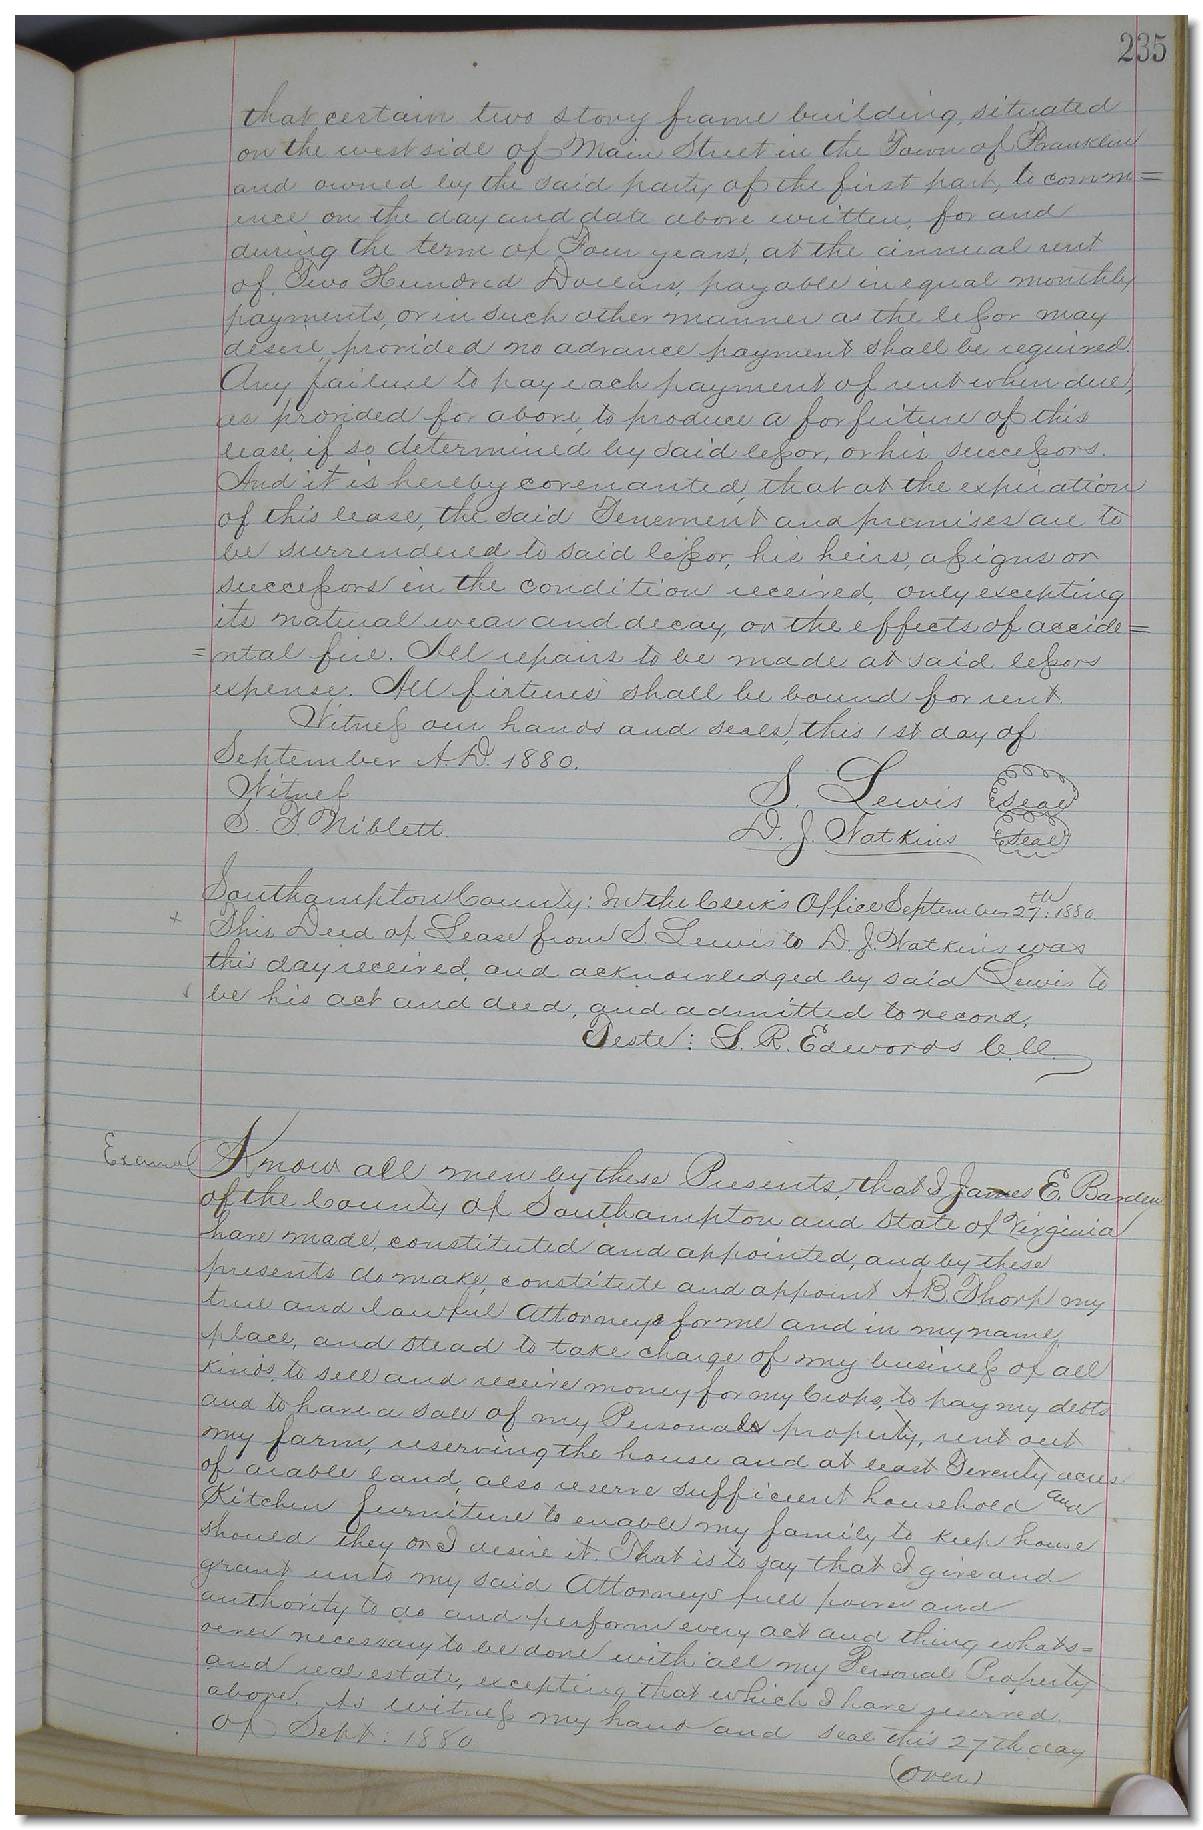 235
that certain two story frame building, situated
on the west side of Main Street in the Town of Franklin
and owned by the said party of the first part, to comm=
ence on the day and date above written, for and
during the term of Four years, at the annual rent
of Two Hundred Dollars, payable in equal monthly
payments, or in such other manner as the lessor may
desire, provided no advance payment shall be required.
Any failure to pay each payment of rent when due,
as provided for above, to produce a forfeiture of this
lease, if so determined by said lessor, or his successors.
And it is hereby covenanted, that at the expiration
of this lease, the said Tenement and premises are to
be surrendered to said lessor, his heirs, assigns or
successors in the condition received, only excepting
its natural wear and decay, or the effects of accide=
=ntal fire. All repairs to be made at said lessors
expense. All fixtures shall be bound for rent.
Witness our hands and seals, this 1st day of
September A.D. 1880.
Witness S. Lewis Seal
S. F. Niblett. D. J. Watkins Seal
Southampton County: In the Clerk's Office September 27th: 1880.
This Deed of Lease from S. Lewis to D. J. Watkins was
this day received, and acknowledged by said Lewis to
be his act and deed, and admitted to record.
Teste: L. R. Edwards C.C.
Know all men by these Presents, that I James E. Barden
of the County of Southampton and State of Virginia
have made, constituted and appointed, and by these
presents do make, constitute and appoint A. B. Thorp my
true and lawful Attorneys for me and in my name,
place, and stead to take charge of my business of all
kinds, to sell and receive money for my Crops, to pay my debts
and to have a sale of my Personal property, rent out
my farm, reserving the house and at least Twenty acres
of arable land, also reserve sufficient household and
Kitchen furniture to enable my family to keep house
should they or I desire it. That is to say that I give and
grant unto my said Attorneys full power and
authority to do and perform every act and thing whats=
oever necessary to be done with all my Personal Property
and real estate, excepting that which I have reserved
above. As witness my hand and seal this 27th day
of Sept: 1880
(Over)